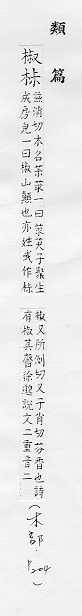 類篇
椒 茮 茲消切木名茱萸一曰茱萸子聚生
成房皃一曰椒山顛也亦姓或作茮
椒又所倒切又子肖切芬香也詩
有椒其馨徐邈說文二重音二
(木部.P204)